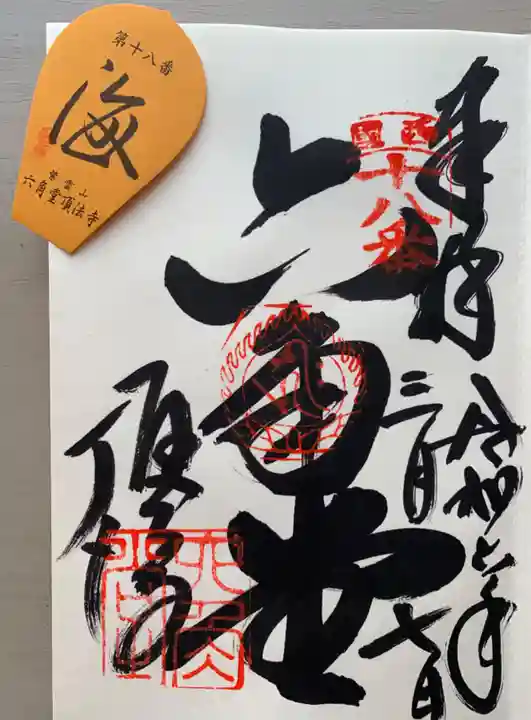 第十八番
海
紫雲山
六角堂頂法寺
西国
十八番
奉拝
令和六年
三月七日
六角堂
頂法寺
六角堂